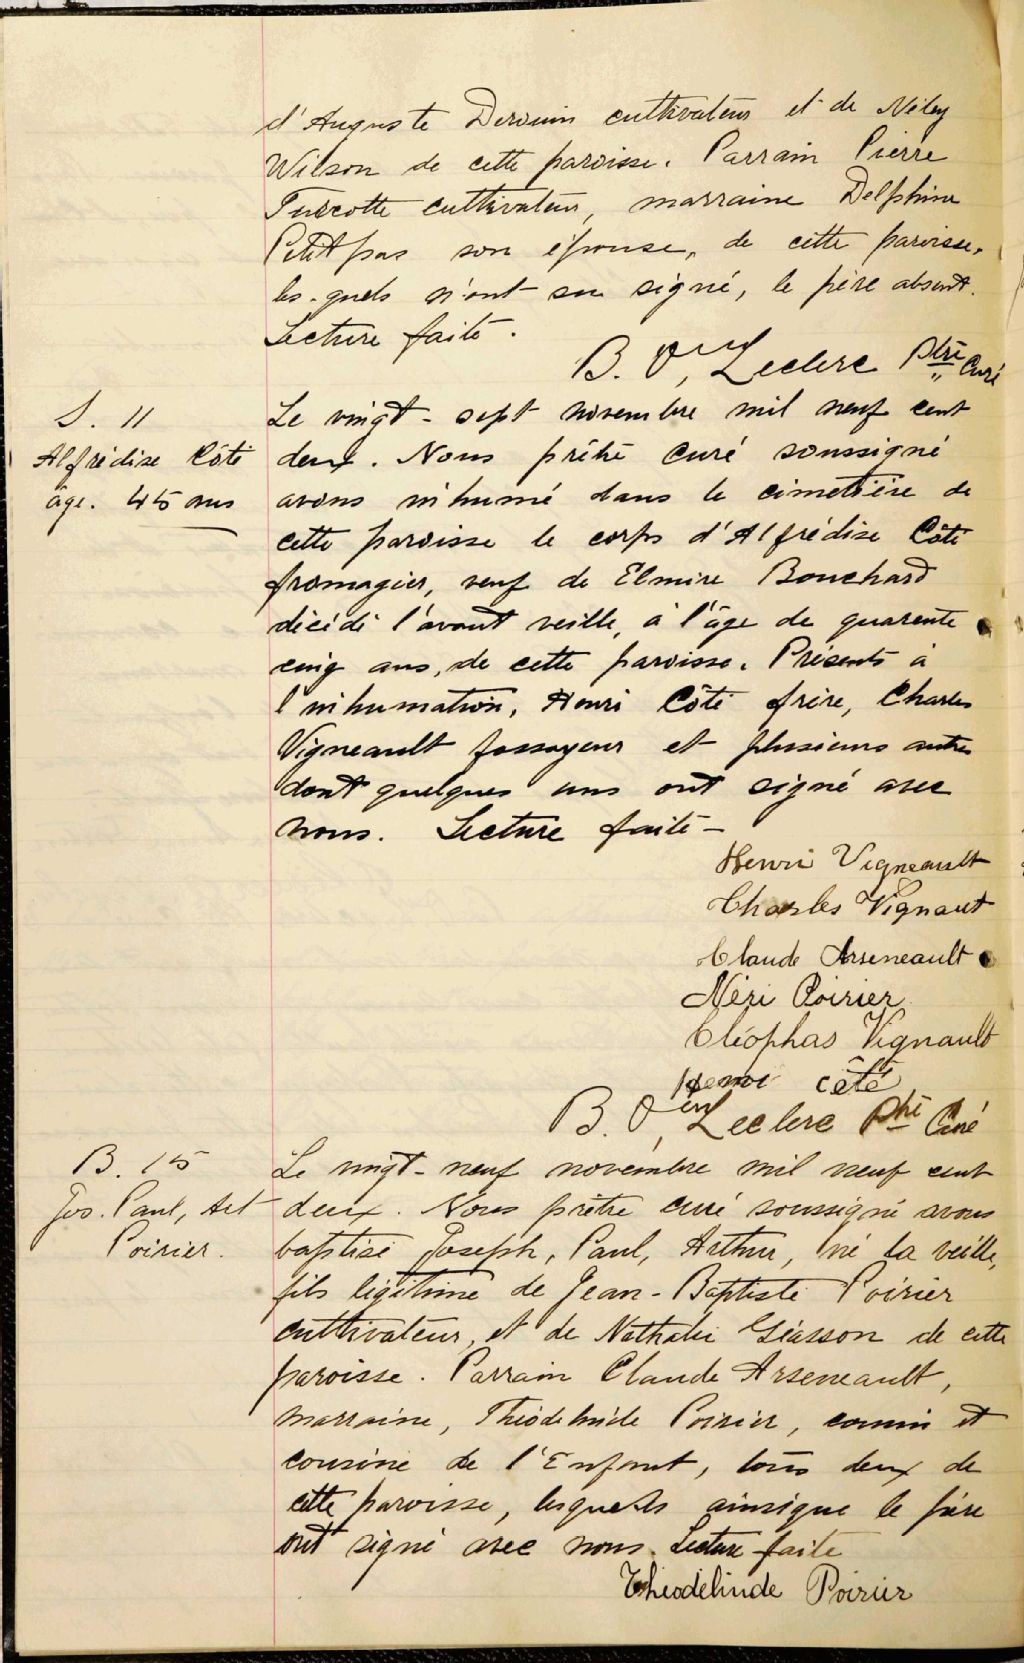 d'Auguste Derouin cultivateur et de Néley
Wilson de cette paroisse. Parrain Pierre
Turcotte cultivateur, marraine Delphine
Petitpas son épouse, de cette paroisse,
les-quels n'ont su signé, le père absent.
Lecture faite.
B. O, Leclerc Ptre Curé
S. 11
Alfrédise Côté
âge. 45 ans
Le vingt-sept novembre mil neuf cent
deux. Nous prêtre curé soussigné
avons inhumé dans le cimetière de
cette paroisse le corps d'Alfrédise Côté
fromagier, veuf de Elmire Bouchard
décédé l'avant veille, à l'âge de quarente
cinq ans, de cette paroisse. Présents à
l'inhumation, Henri Côté frère, Charles
Vigneault fossoyeur et plusieurs autres
dont quelques uns ont signé avec
nous. Lecture faite-
Henri Vigneault
Charles Vignaut
Claude Arseneault
Néri Poirier
Cléophas Vignault
Henri Côté
B. O, Leclerc Ptre Curé
B. 15
Jos. Paul, Art
Poirier.
Le vingt-neuf novembre mil neuf cent
deux. Nous prêtre curé soussigné avons
baptisé Joseph, Paul, Arthur, né la veille,
fils légitime de Jean-Baptiste Poirier
cultivateur, et de Nathalie Géasson de cette
paroisse. Parrain Claude Arseneault,
marraine, Théodelinde Poirier, cousin et
cousine de l'Enfant, tous deux de
cette paroisse, lesquels ainsique le père
ont signé avec nous. Lecture faite
Théodelinde Poirier